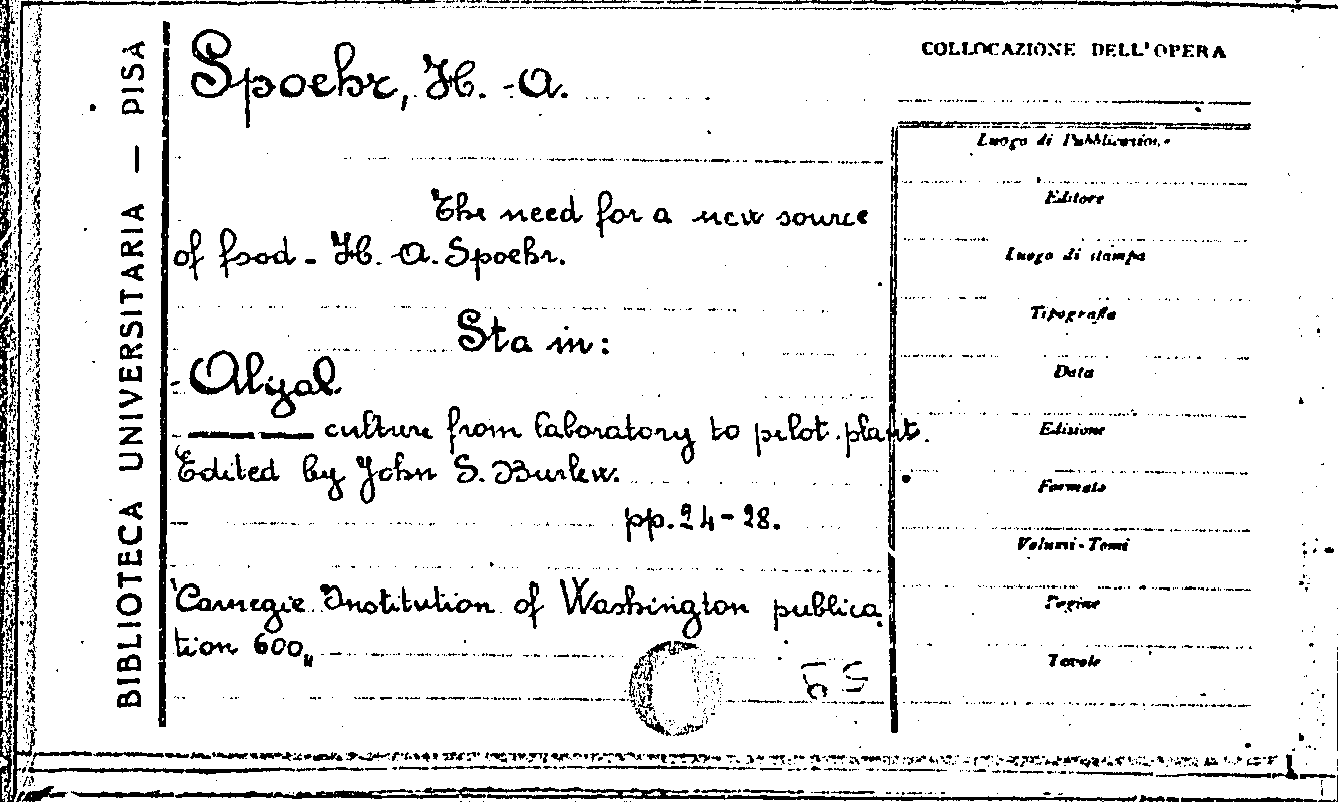 BIBLIOTECA UNIVERSITARIA — PISA
Spoehr, H. A.
The need for a new source
of food - H. A. Spoehr.
Sta in:
Algal
—— —— culture from laboratory to pilot plant.
Edited by John S. Burlew.
pp. 24-28.
"Carnegie Institution of Washington publica
tion 600"
COLLOCAZIONE DELL'OPERA
Luogo di Pubblicazione
Editore
Luogo di stampa
Tipografia
Data
Edizione
Formato
Volumi-Tomi
Pagine
Tavole